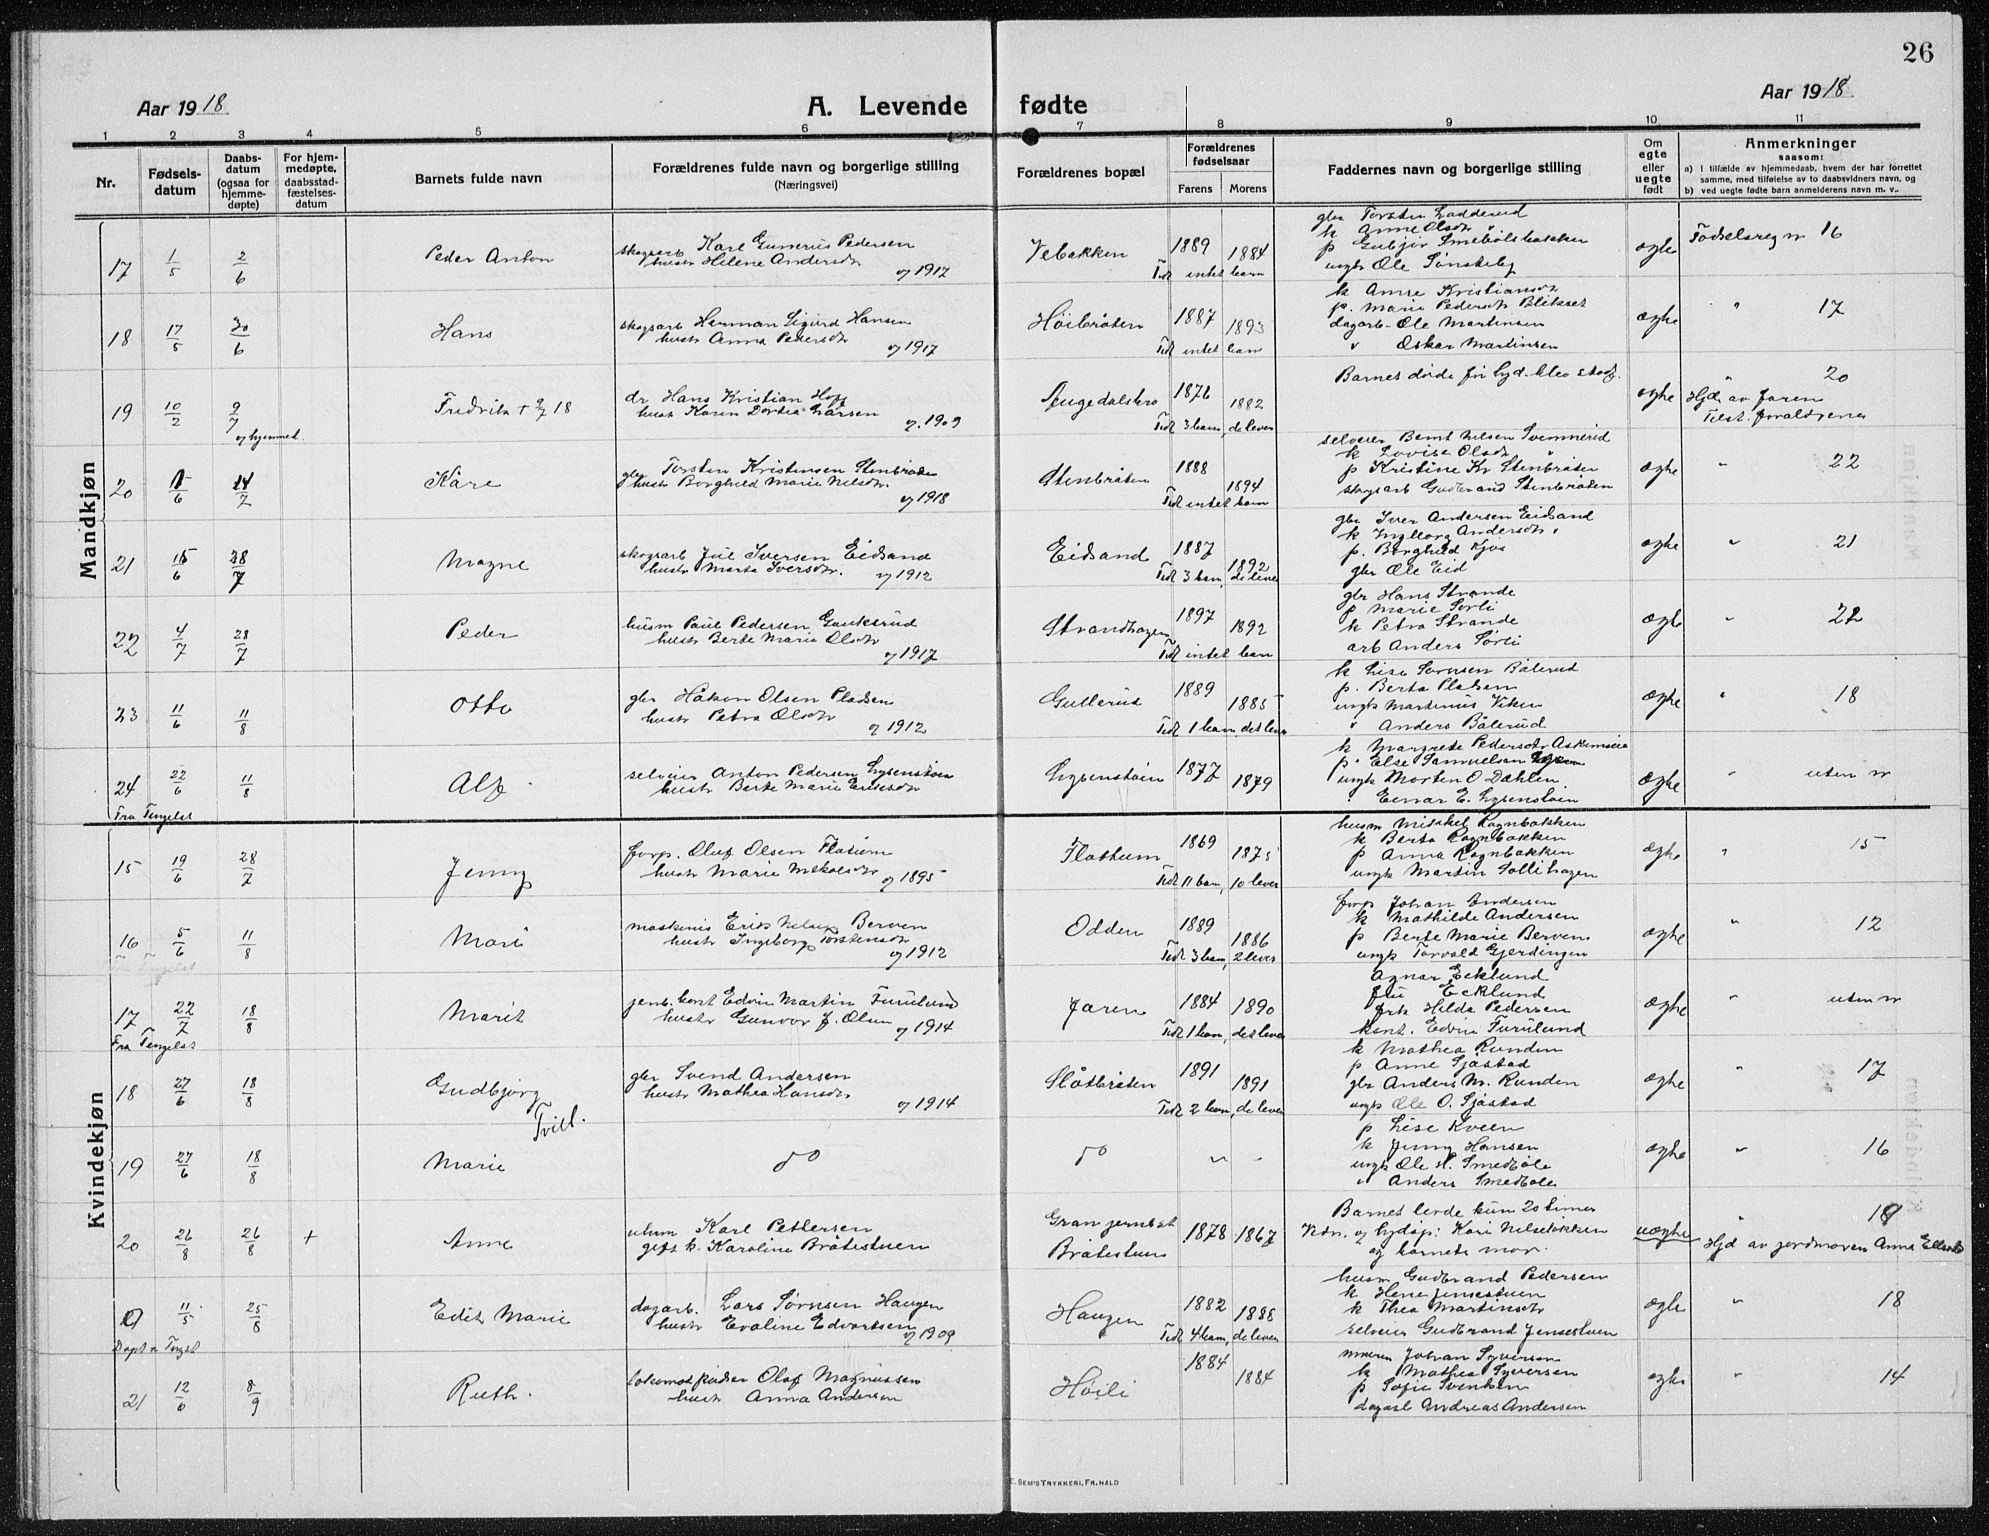 26
Aar 1918
A. Levende fødte
Aar 1918
1 2 3 4 5 6 7 8 9 10 11
Nr.
Fødsels-
datum
Daabs-
datum
(ogsaa for
hjemme-
døpte)
For hjem-
medøpte,
daabsstad-
fæstelses-
datum
Barnets fulde navn
Forældrenes fulde navn og borgerlige stilling
(Næringsvei)
Forældrenes bopæl
Forældrenes
fødselsaar
Farens Morens
Faddernes navn og borgerlige stilling
Om
egte
eller
uegte
født
Anmerkninger
saasom:
a) i tilfælde av hjemmedaab, hvem der har forrettet
samme, med tilføielse av to daabsvidners navn, og
b) ved uegte fødte barn anmelderens navn m. v..
Mandkjøn
17 1/5 2/6 Peder Anton
skogsarb Karl Gunerius Pedersen
hustr Helene Andersdtr
og 1917
Vebakken 1889 1884
Tidl intet barn
gbr Torsten Ladderud
k Anne Olsdtr "
p Gubjør Smebølsbakken
ungk Ole Sønsteby
egte Fødselsreg nr 16
18 17/5 30/6 Hans
skogsarb Herman Sigurd Hansen
hustr Anna Pedersdtr
og 1917
Høibråten 1887 1893
Tidl intet barn
k Anne Kristiansdtr
p. Marie Pedersdtr Blikset
dagarb. Ole Martinsen
" Oskar Martinsen
egte " 17
19 10/2 9/7 og hjemmed. Fredrik + 9/7 18
dr Hans Kristian Hoff
hustr Karen Dortea Larsen
og 1909
1876 1882
Tidl 3 barn, de lever
egte " 20
Hjd. av faren
Tilst. forældrene
20 1/6 14/7 Kåre
gbr Torsten Kristensen Stenbråten
hustr Borghild Marie Nilsdtr.
og 1918
Stenbråten 1888 1894
Tidl intet barn
selveier Bernt Nilsen Svennerud
k Lovise Olsdtr "
p Kristine Kr Stenbråten
skogsarb Gudbrand Stenbråten
egte " 22
21 15/6 28/7 Magne
skogsarb Juel Iversen Eidsand
hustr Marta Iversdtr.
og 1912
Eidsand 1887 1892
Tidl 3 barn, de lever
gbr Iver Andersen Eidsand
k Ingeborg Andersdtr "
p. Borghild Kjos
gbr Ole Eid
egte " 21
22 4/7 28/7 Peder
husm Paul Pedersen Gauksrud
hustr Berte Marie Olsdtr
og 1917
Strandhagen 1897 1892
Tidl intet barn
gbr Hans Strande
p Marie Sørli
k Petra Strande
arb Anders Sørli
egte " 22
23 11/6 11/8 Otto
gbr Håkon Olsen Pladsen
hustr Petra Olsdtr
og 1912
Gullerud 1889 1885
Tidl 1 barn, det lever
k Lise Sørnsen Bålerud
p. Berta Pladsen
ungk Martinius Viken
" Anders Bålerud
egte " 18
24 22/6 11/8 Alf
Fra Tingelst
selveier Anton Pedersen Lysenstøen
hustr Berte Marie Eriksdtr
Lysenstøen 1877 1879
k Margrete Pedersdtr Askimseie
p. Else Samuelsen
ungk Morten O Dæhlen
" Einar E. Lysenstøen
egte " uten nr
Kvindekjøn
15 19/6 28/7 Jenny
forp. Oluf Olsen Flatum
hustr Marie Mikalsdtr
og 1895
Flathum 1869 1875
Tidl 11 barn, 10 lever
husm Mikkel Rognbakken
k Berta Rognbakken
p Anna Rognbakken
ungk Martin Sollihagen
egte " 15
16 5/6 11/8 Mari
Fra Tingelst
maskinis Erik Nilsen Berven
hustr Ingeborg Torstensdtr
og 1912
Odden 1889 1886
Tidl 3 barn, 2 lever
forp Johan Andersen
k Mathilde Andersen
p Berte Marie Berven
ungk Torvald Gjerdingen
egte " 12
17 22/7 18/8 Marit
Fra Tingelst
jenb. kont Edvin Martin Furulund
hustr Gunvor J. Olsen
og 1914
Jaren 1884 1890
Tidl 1 barn, det lever
Agnar Ecklund
fru Ecklund
frk Hilda Pedersen
kont. Edvin Furulund
egte " uten nr
18 27/6 18/8 Gudbjørg
Tvill.
gbr Svend Andersen
hustr Mathea Hansdtr
og 1914
Slåtbråten 1891 1891
Tidl 2 barn, de lever
k Mathea Runden
p Anne Sjåstad
gbr Anders M. Runden
ungk Ole O. Sjåstad
egte " 17
19 27/6 18/8 Marie
do
do " "
p Lise Kveen
k Jenny Hansen
ungk Ole H. Smedbøle
" Anders Smedbøle
egte " 16
20 26/8 26/8 + Anne
ukm Karl Pettersen
gift k. Karoline Bråtestuen
Gran jernbst
Bråtestuen 1878 1867
Barnet levde kun 2s timer
Vidn. og lydsp: Kari Nilsebakken
og barnets mor.
uegte " 19
Hjd av jordmoren Anna
11/5 25/8 Edit Marie
Døpt n Tingst
dagarb. Lars Sørnsen Haugen
hustr Evaline Edvartsen
og 1909
Haugen 1882 1888
Tidl 4 barn, de lever
husm Gudbrand Pedersen
k Helene Jensestuen
k Thea Martinsdtr
selveier Gudbrand Jensestuen
egte " 18
21 12/6 8/9 Ruth.
lokomotpudser Olaf Magnussen
hustr Anna Andersen
Høili 1884 1884
murer Johan Syversen
k Mathea Syversen
p Sofie Svenken
dagarb Andreas Andersen
egte " 14
E. SEM'S TRYKKERI, FR.HALD